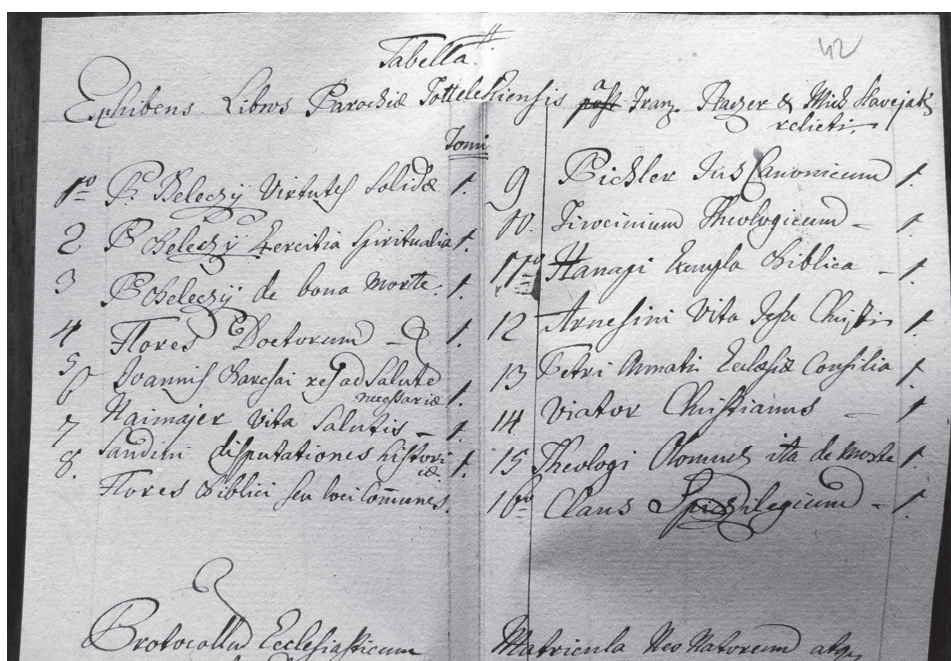 42
Tabella
Exhibens Libros Parochiæ Tottelekiensis Franz Raczer & Mich
relicti.
Tomi
1º P. Beleczÿ Virtutes Solidæ 1.
2 P Beleczÿ Exercitia Spiritualia 1.
3 P Beleczÿ de bona Morte. 1.
4 Flores Doctorum 1.
5 Joannis Barcsai res ad Salute
necessariæ 1.
6 Vita Salutis 1.
7 Sandini disputationes histori
cæ 1.
8. Flores Biblici seu loci Com̄unes.
9 Pichler Jus Canonicum 1.
10. Tirocinium Theologicum - 1.
11º Hanapi Exempla Biblica - 1
12 Arnesini Vita Jesu Christi 1
13 Petri Ecclesiæ Consilia 1.
14 Viator Christianus - 1.
15 Theologi ita de Morte 1.
16º Claus Spicilegium - 1.
Protocollū Ecclesiasticum
Matricula Neo Natorum atq